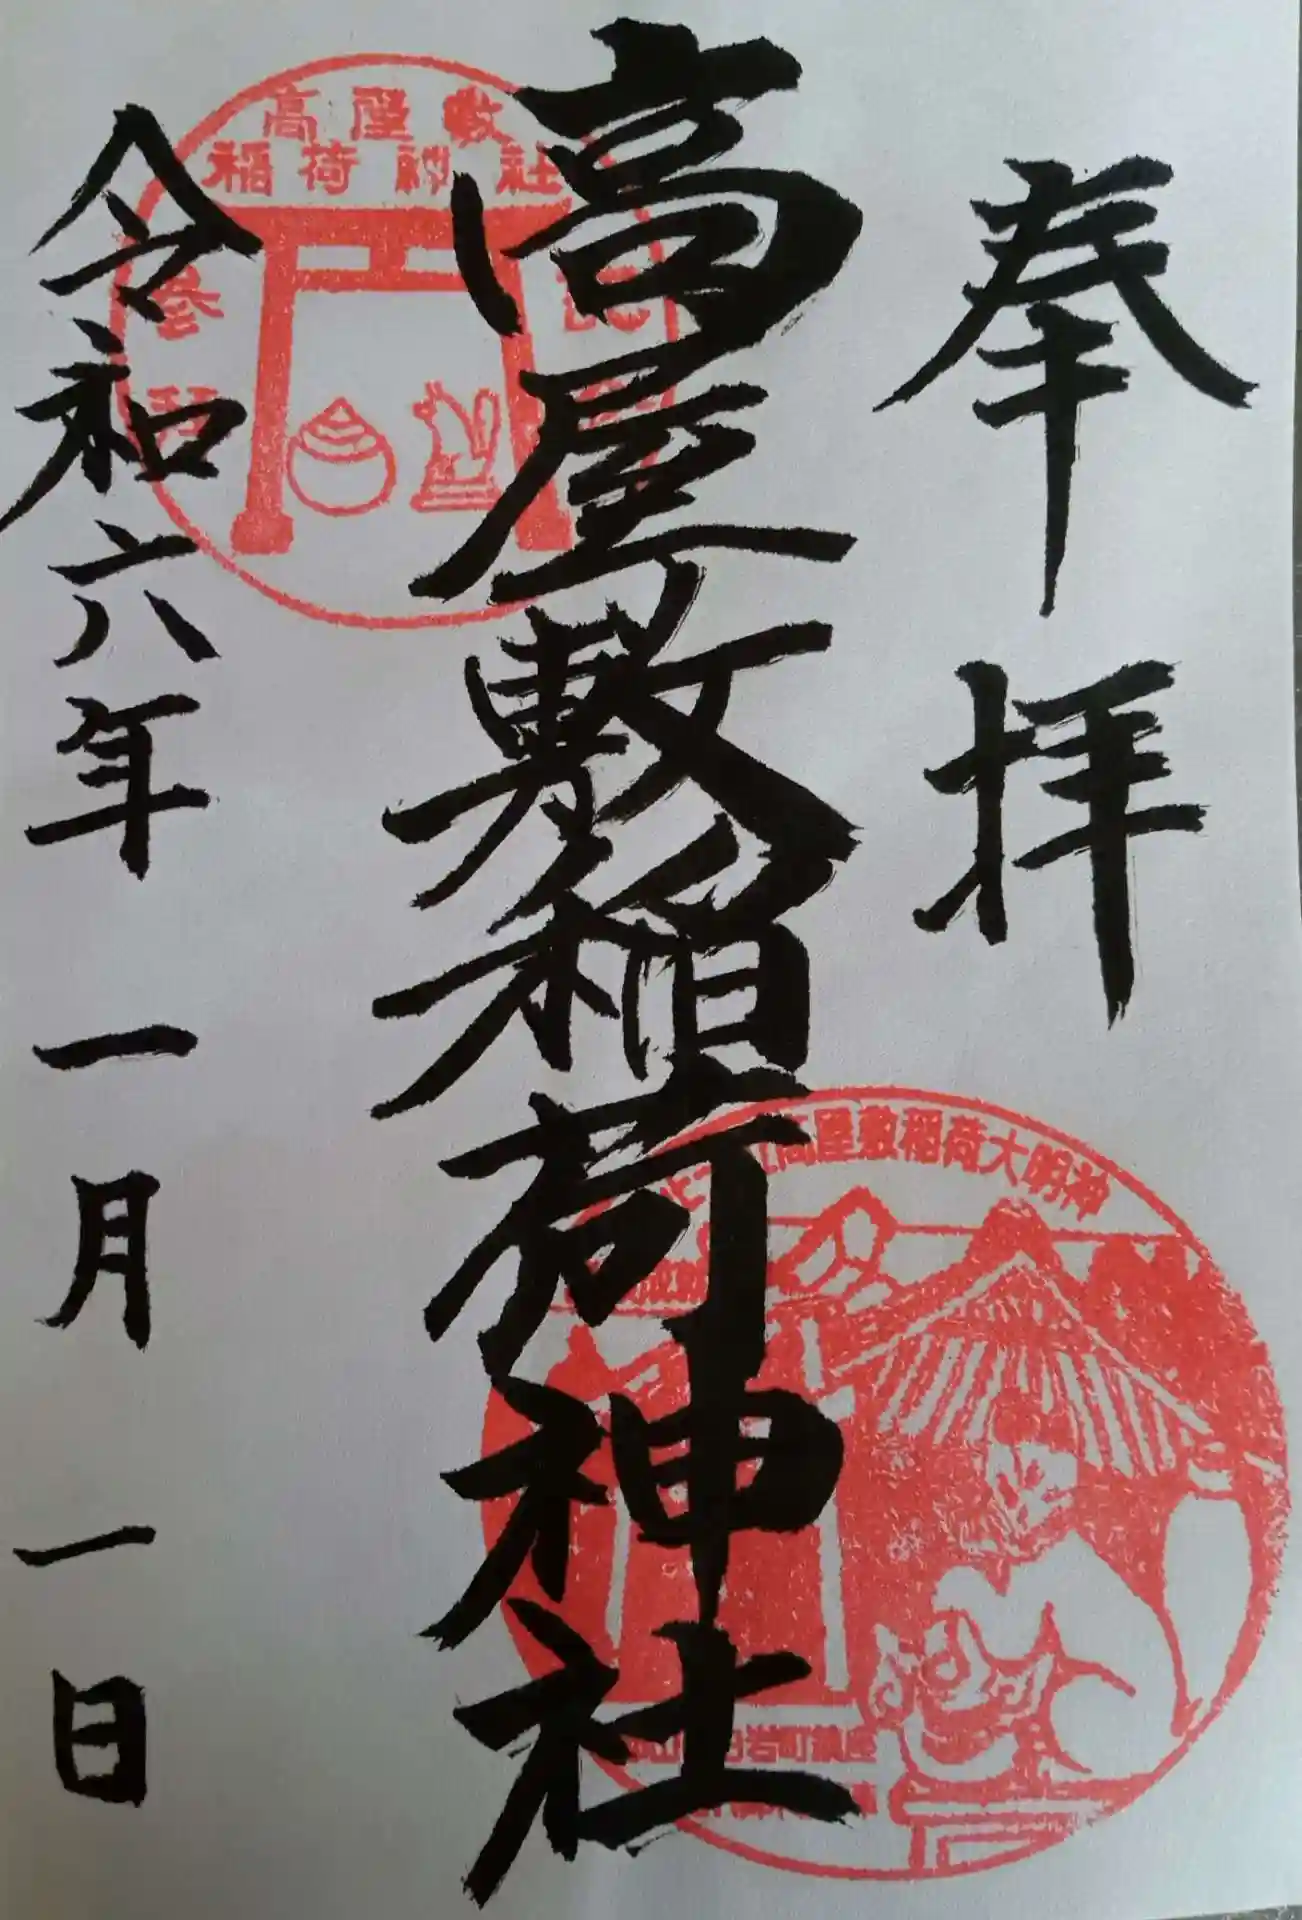 奉拝
高屋敷稲荷神社
令和六年一月一日
高屋敷
稲荷神社
参拝
高屋敷稲荷大明神
岩町鎮座